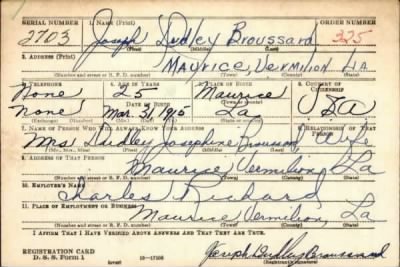 SERIAL NUMBER 1. NAME (Print) ORDER NUMBER
2703 Joseph Dudley Broussard 225
(First) (Middle) (Last)
2. ADDRESS (Print)
MAURICE, VERMILION LA
(Number and street or R. F. D. number) (Town) (County) (State)
3. TELEPHONE 4. AGE IN YEARS 5. PLACE OF BIRTH 6. COUNTRY OF CITIZENSHIP
None 25 Maurice
DATE OF BIRTH
None Mar. 9, 1915 La
(Exchange) (Number) (Mo.) (Day) (Yr.) (State or country)
7. NAME OF PERSON WHO WILL ALWAYS KNOW YOUR ADDRESS 8. RELATIONSHIP OF THAT PERSON
Mrs. Dudley Josephine Broussard, Wife
(Mr., Mrs., Miss) (First) (Middle) (Last)
9. ADDRESS OF THAT PERSON
Maurice Vermilion, La
(Number and street or R. F. D. number) (Town) (County) (State)
10. EMPLOYER'S NAME
Charles Richard
11. PLACE OF EMPLOYMENT OR BUSINESS
Maurice Vermilion, La
(Number and street or R. F. D. number) (Town) (County) (State)
I AFFIRM THAT I HAVE VERIFIED ABOVE ANSWERS AND THAT THEY ARE TRUE.
REGISTRATION CARD
D. S. S. Form 1 (over) Joseph Dudley Broussard
(Registrant's signature)